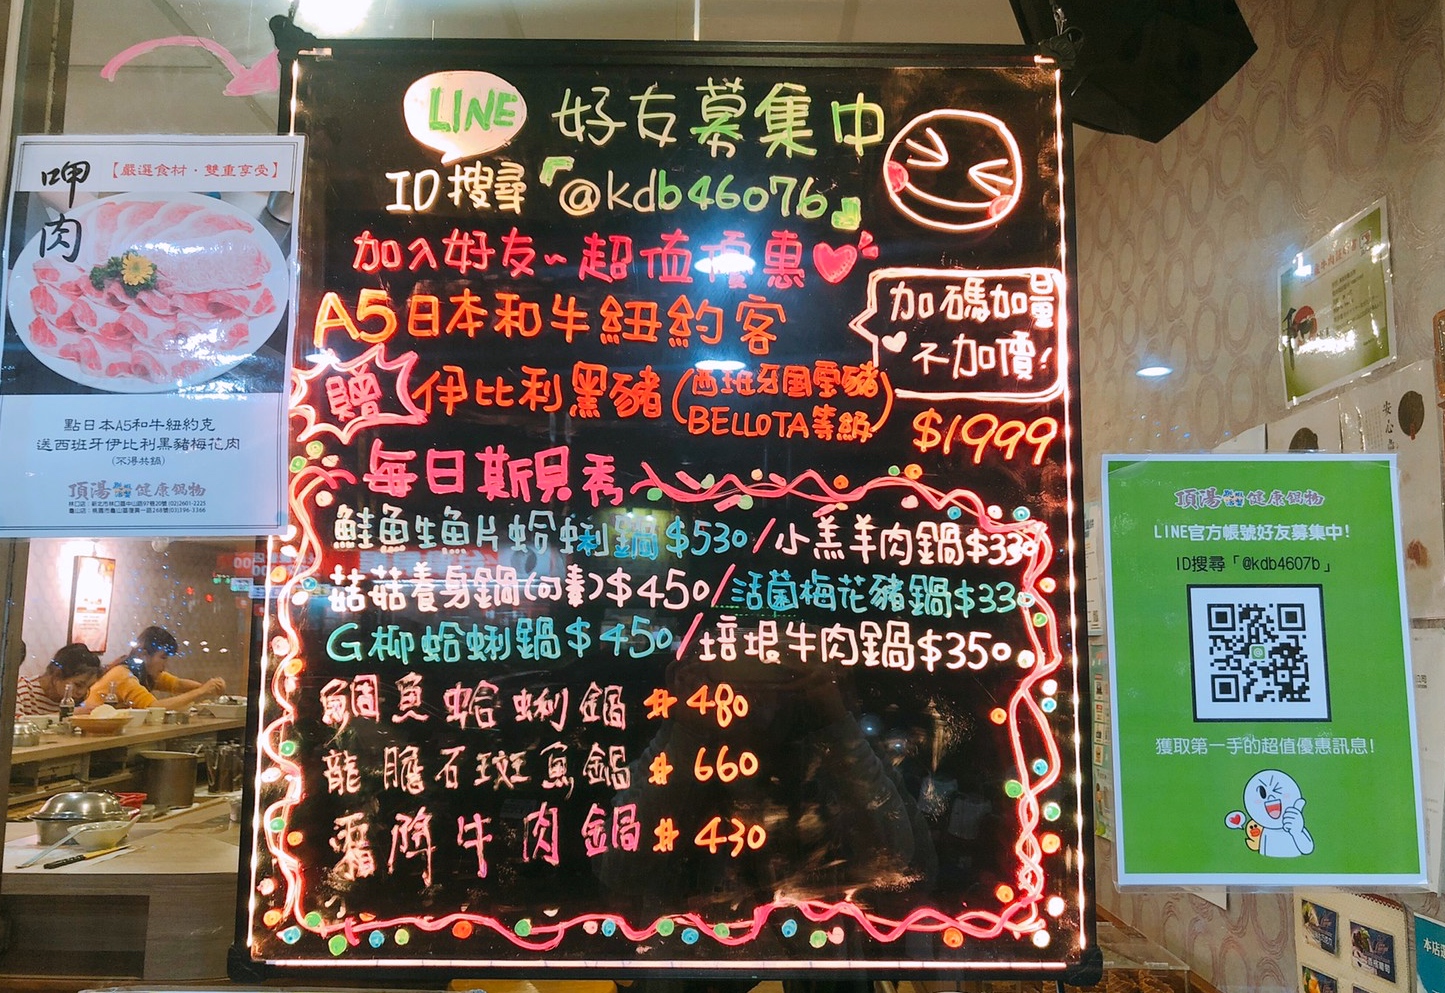 LINE 好友募集中
ID搜尋『@kdb4607b』
加入好友~超值優惠
A5日本和牛紐約客
加碼加量
不加價!
贈 伊比利黑豬(西班牙国寶豬
BELLOTA等級)
$1999
每日斯貝秀
鮭魚生魚片蛤蜊鍋$530/小羔羊肉鍋$330
菇菇養身鍋(可素)$450/活菌梅花豬鍋$330
G柳蛤蜊鍋$450/培根牛肉鍋$350
鯛魚蛤蜊鍋 $480
龍膽石斑魚鍋 $660
霜降牛肉鍋 $430
呷肉
【嚴選食材・雙重享受】
點日本A5和牛紐約克
送西班牙伊比利黑豬梅花肉
(不得共鍋)
頂湯 健康鍋物
頂湯 健康鍋物
LINE官方帳號好友募集中!
ID搜尋「@kdb4607b」
獲取第一手的超值優惠訊息!